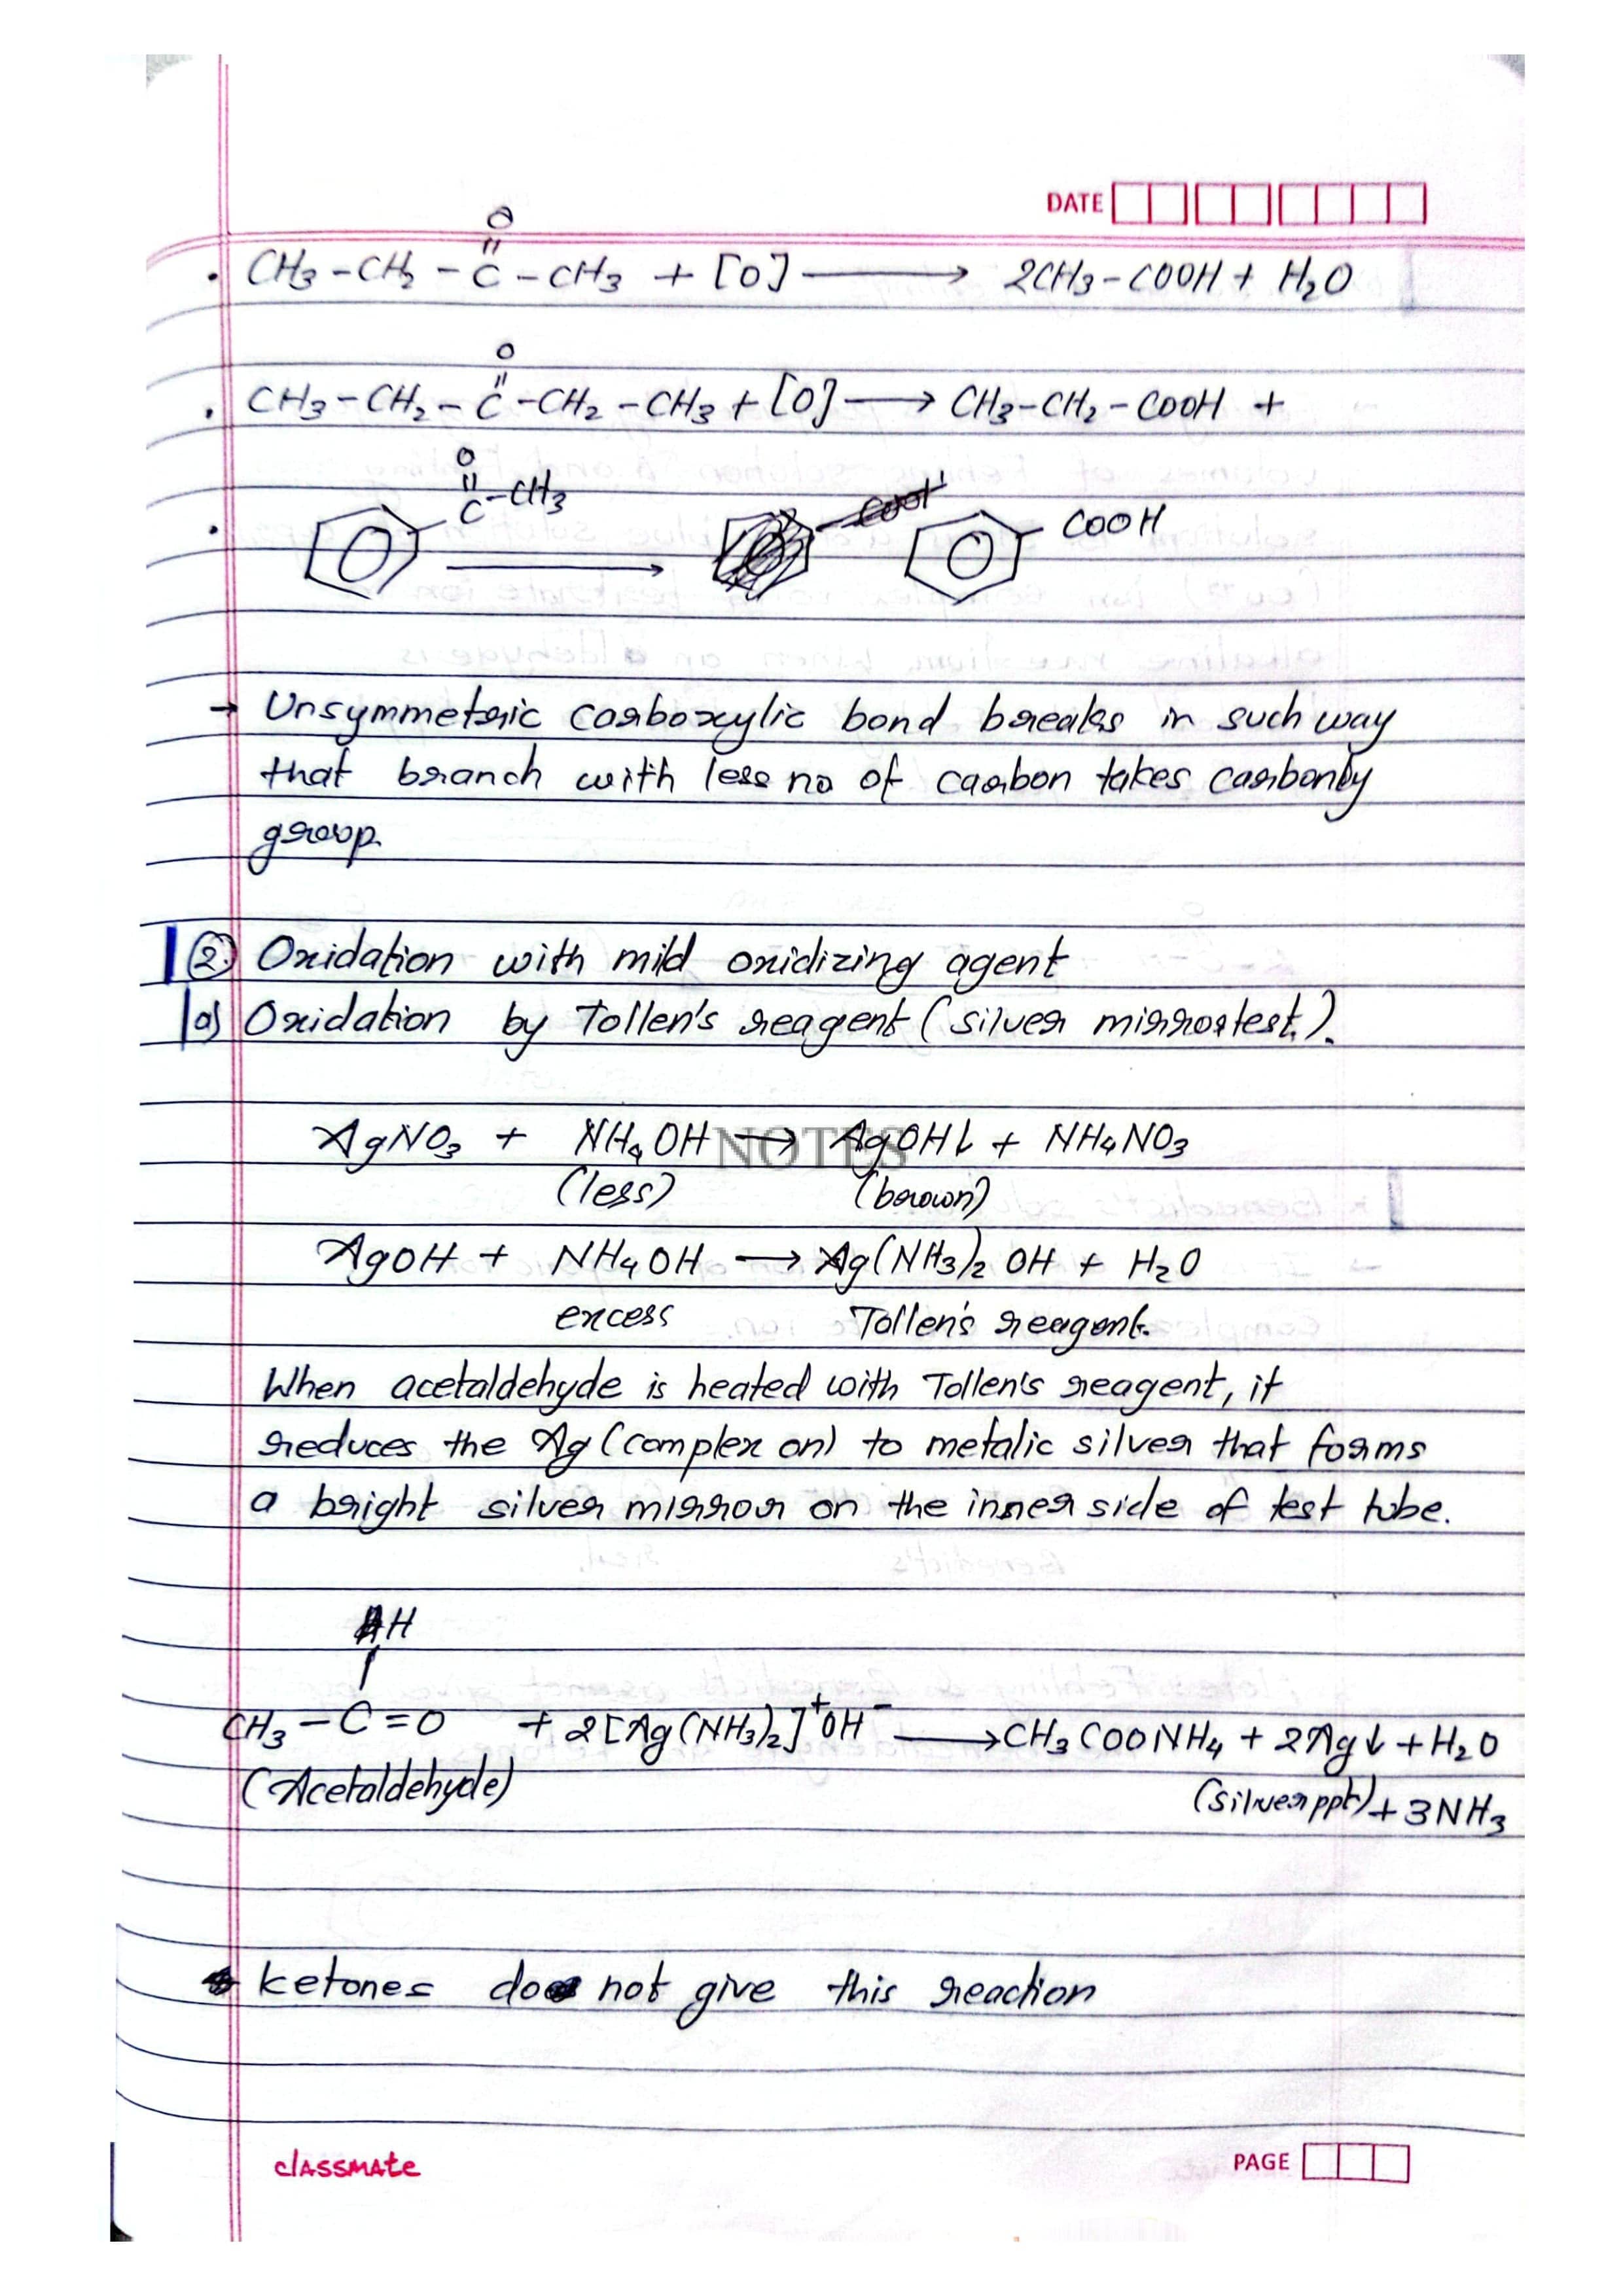 DATE
O
• CH3-CH2-C-CH3 + [O] → 2CH3-COOH + H2O
O
• CH3-CH2-C-CH2-CH3 + [O] → CH3-CH2-COOH +
O
C-CH3
• COOH
→ Unsymmetric carboxylic bond breaks in such way
that branch with less no of carbon takes carbonly
group.
② Oxidation with mild oxidizing agent
a) Oxidation by Tollen's reagent (silver mirror test).
AgNO3 + NH4OH → AgOH↓ + NH4NO3
NOTES
(less) (brown)
AgOH + NH4OH → Ag(NH3)2 OH + H2O
excess Tollen's reagent.
When acetaldehyde is heated with Tollen's reagent, it
reduces the Ag (complex on) to metalic silver that forms
a bright silver mirror on the inner side of test tube.
H
CH3-C=O + 2[Ag(NH3)2]+OH- → CH3COONH4 + 2Ag↓ + H2O
(Acetaldehyde) (silver ppt) + 3NH3
ketones do not give this reaction
classmate PAGE